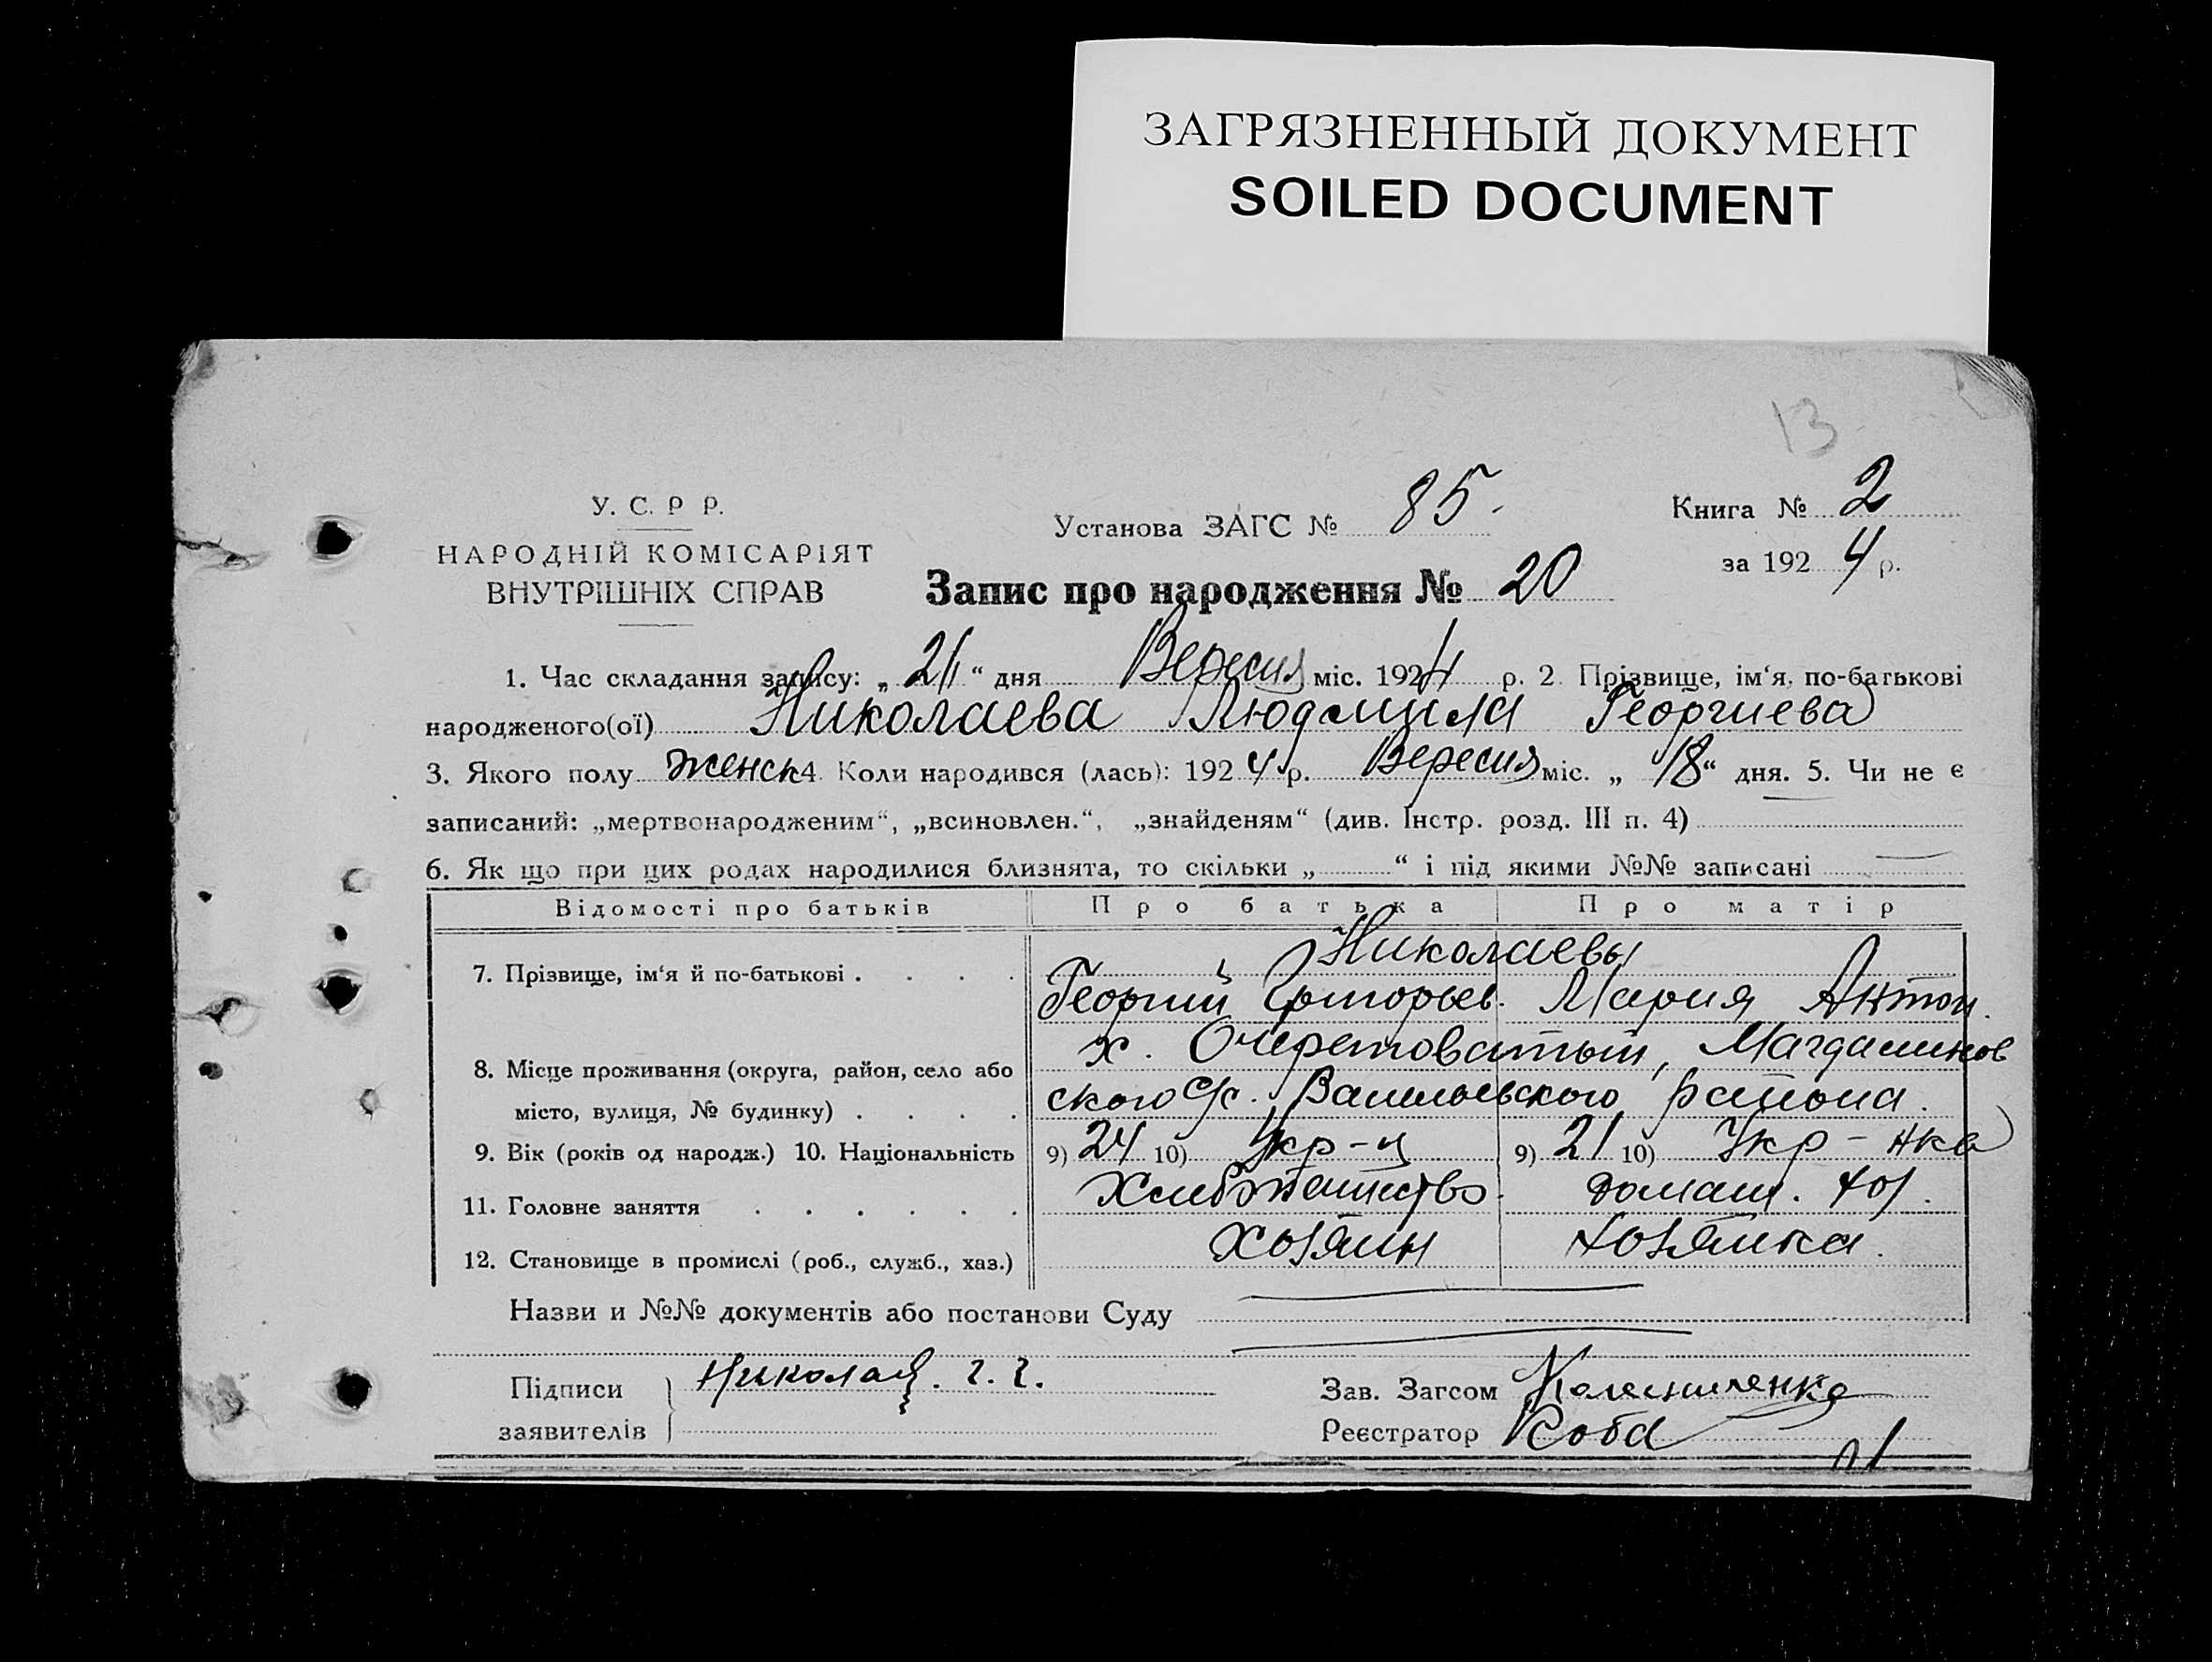 ЗАГРЯЗНЕННЫЙ ДОКУМЕНТ
SOILED DOCUMENT
13
У. С. Р Р.
НАРОДНІЙ КОМІСАРІЯТ
ВНУТРІШНІХ СПРАВ
Установа ЗАГС № 85.
Книга № 2
за 1924 р.
Запис про народження № 20
1. Час складання запису: „ 21 “ дня Вересня міс. 1924 р. 2. Прізвище, ім‘я, по-батькові
народженого(ої) Николаева Людмила Георгиева
3. Якого полу женск 4. Коли народився (лась): 1924 р. Вересня міс. „ 18 “ дня. 5. Чи не є
записаний: „мертвонародженим“, „всиновлен.“, „знайденям“ (див. Інстр. розд. III п. 4)
6. Як що при цих родах народилися близнята, то скільки „ “ і під якими №№ записані
Відомості про батьків Про батька Про матір
Николаевы
7. Прізвище, ім‘я й по-батькові . . . .
Георгий Григорьев. Мария Антон.
х. Очеретоватый, Магдалинов
8. Місце проживання (округа, район, село або
місто, вулиця, № будинку) . . . . ского с/с. Васильевского района.
9. Вік (років од народж.) 10. Національність 9) 24 10) Укр-ц 9) 21 10) Укр-нка
11. Головне заняття . . . . . . Хлебопашество. домаш. хоз.
12. Становище в промислі (роб., служб., хаз.) хозяин хозяйка.
Назви и №№ документів або постанови Суду
Підписи
заявителів
Николаев. Г. Г.
Зав. Загсом
Реєстратор